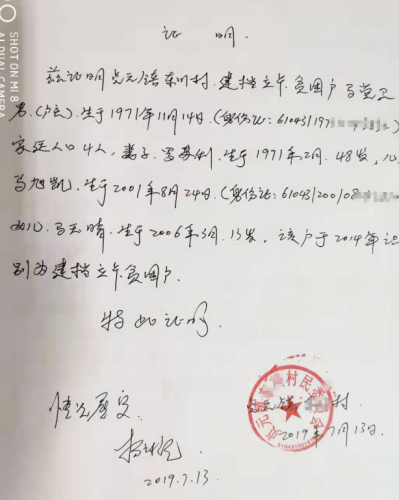 证 明.
兹证明贞元镇东川村.建档立卡贫困户马党卫
男.(户主).生于1971年11月14日.(身份证:61043197
家庭人口4人,妻子.生于1971年2月.48岁,儿
马旭凯.生于2001年8月24日.(身份证:61043200108
女儿.马天晴.生于2006年3月.13岁,该户于2014年识
别为建档立卡贫困户.
特此证明
情况属实.
贞元镇 村.
2019年7月13日.
2019.7.13
SHOT ON MI 8
AI DUAL CAMERA